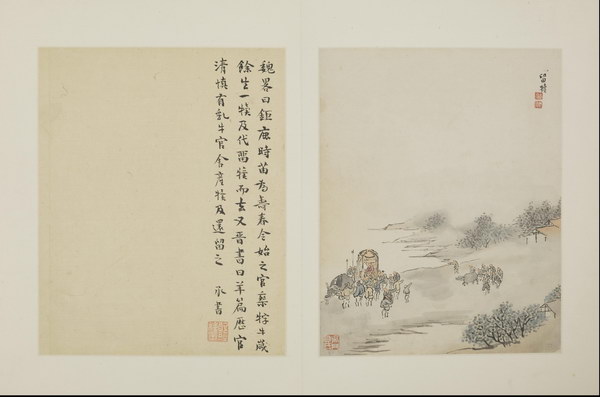 留犢
魏畧曰鉅鹿時苗為壽春令始之官乘牸牛歲
餘生一犢及代留犢而去又晉書曰羊篇歷官
清慎有私牛官舍產犢及遷留之 承書